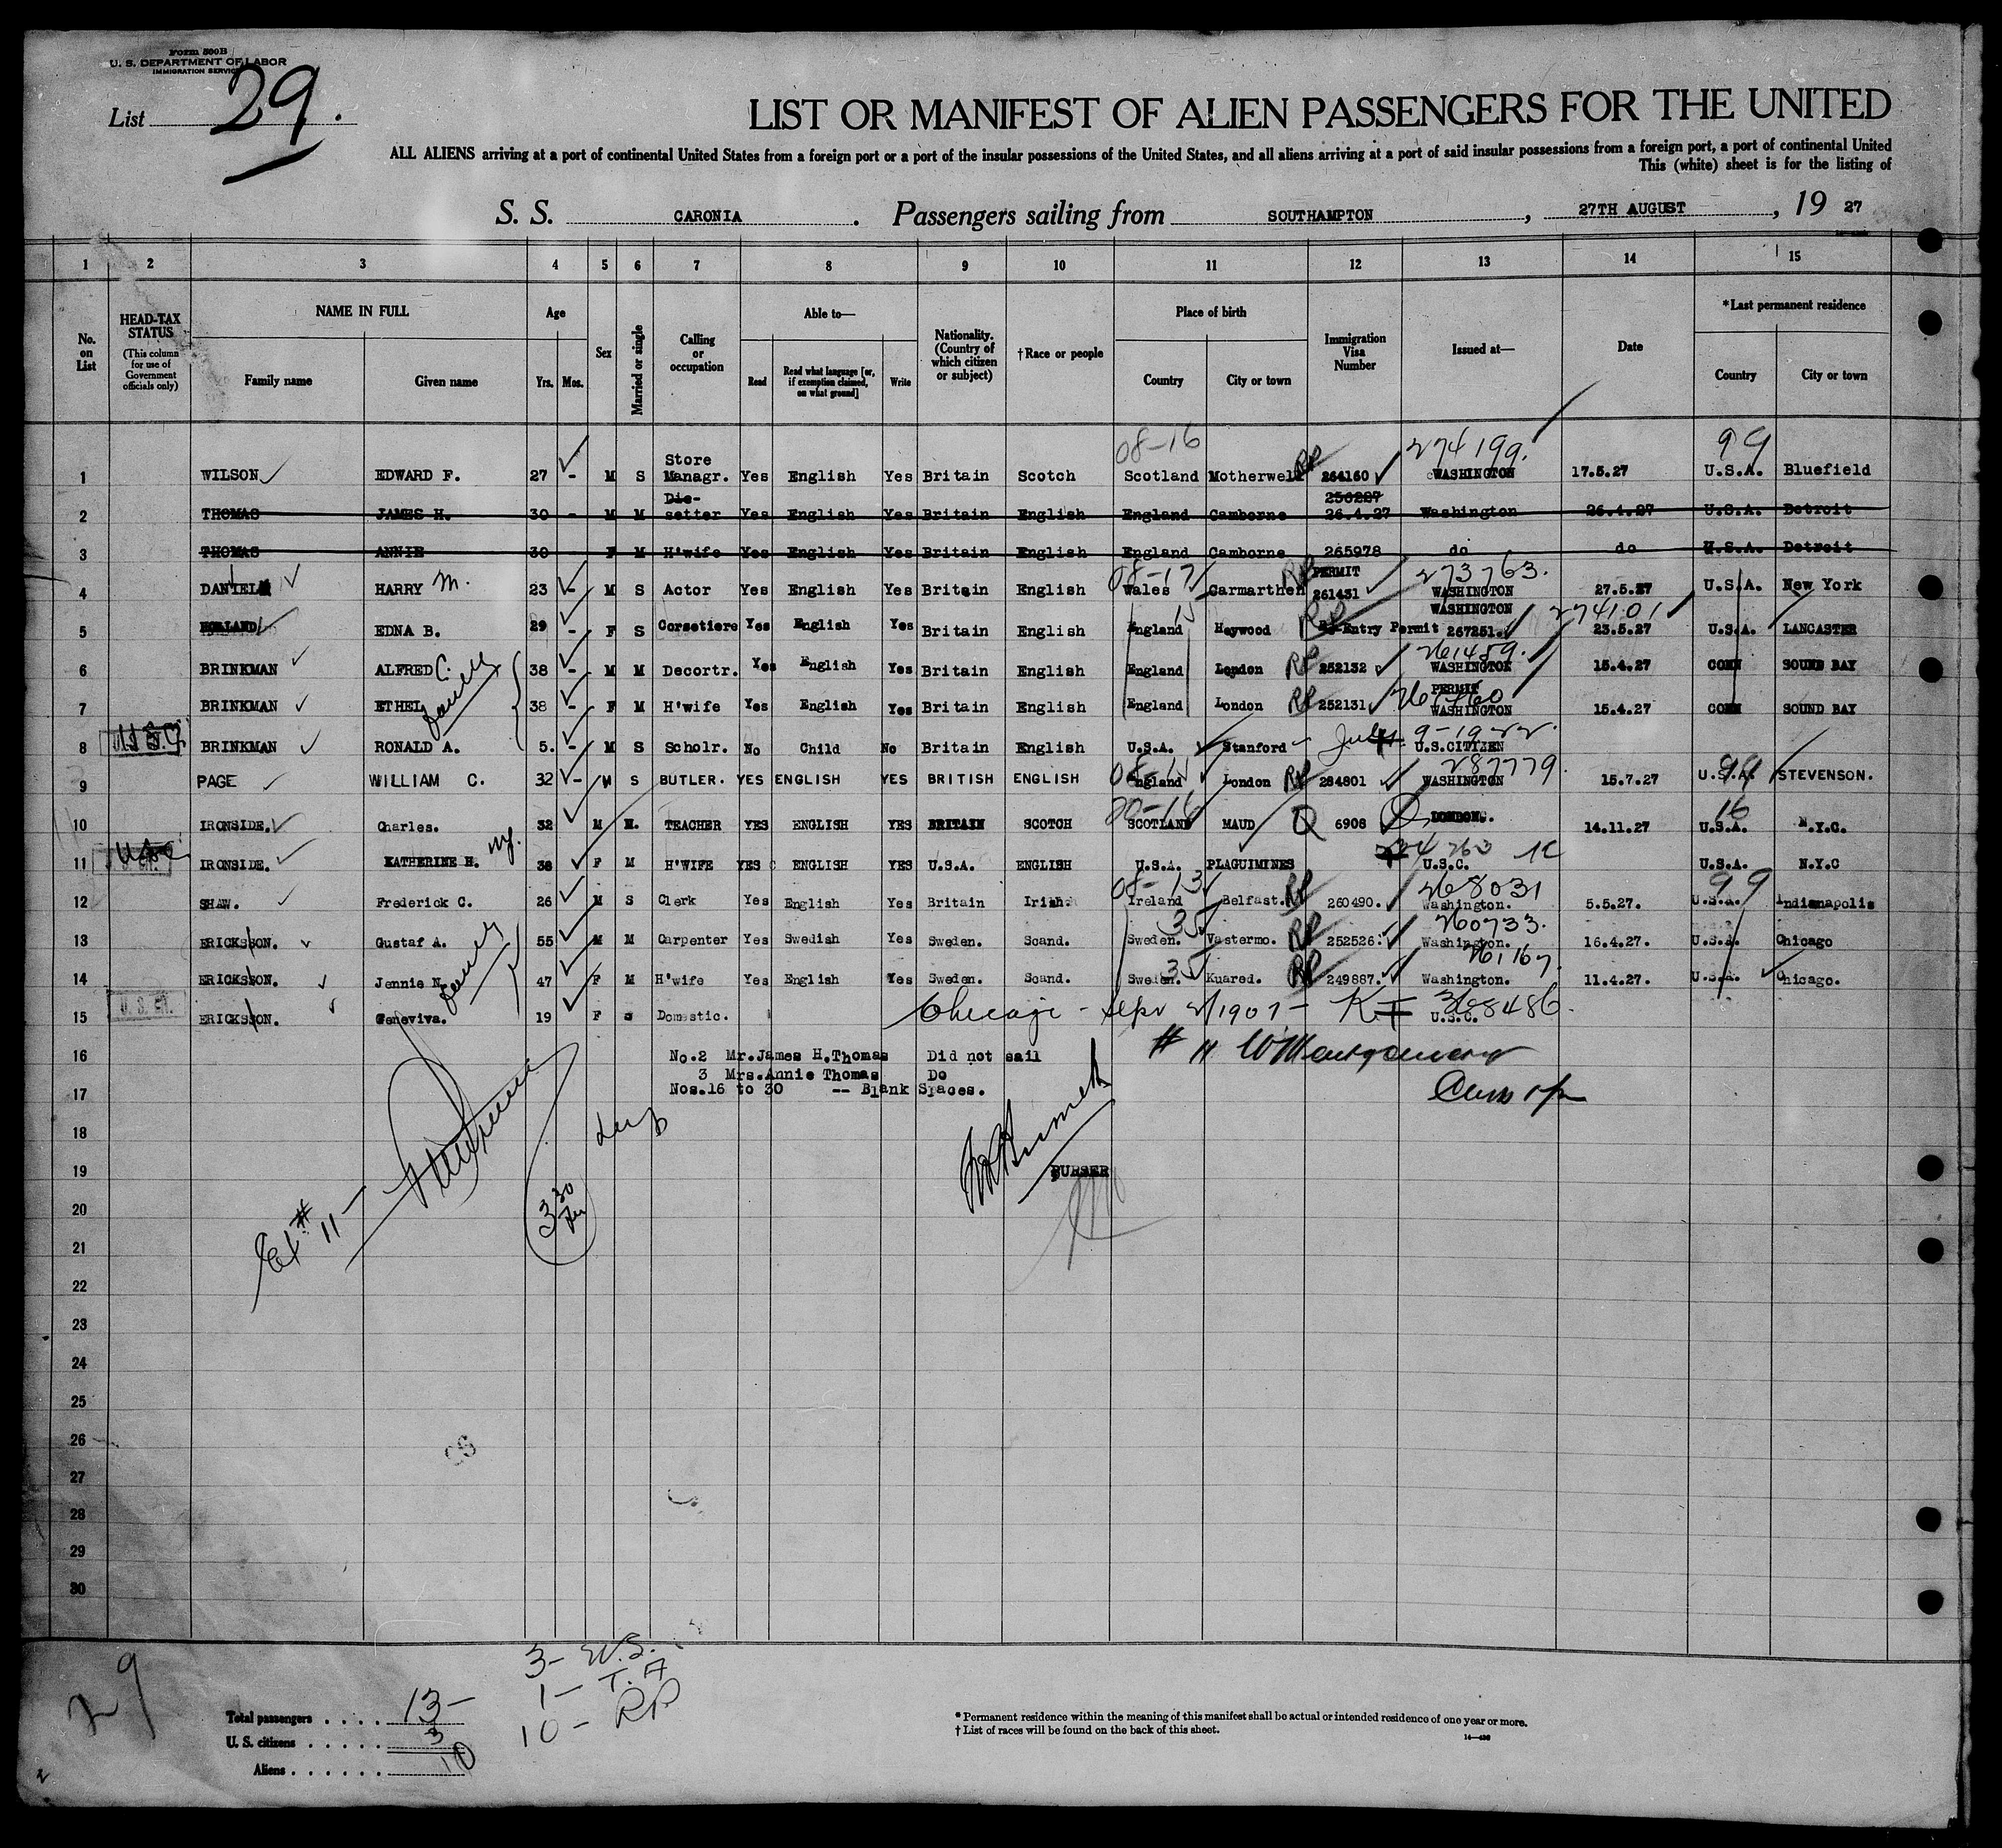 Form 500B
U. S. DEPARTMENT OF LABOR
IMMIGRATION SERVICE
List 29.
LIST OR MANIFEST OF ALIEN PASSENGERS FOR THE UNITED
ALL ALIENS arriving at a port of continental United States from a foreign port or a port of the insular possessions of the United States, and all aliens arriving at a port of said insular possessions from a foreign port, a port of continental United
This (white) sheet is for the listing of
S. S. CARONIA. Passengers sailing from SOUTHAMPTON, 27TH AUGUST, 19 27
1 2 3 4 5 6 7 8 9 10 11 12 13 14 15
No. on List
HEAD-TAX STATUS
(This column for use of Government officials only)
NAME IN FULL
Family name
Given name
Age
Yrs. Mos.
Sex
Married or single
Calling or occupation
Able to—
Read
Read what language [or, if exemption claimed, on what ground]
Write
Nationality. (Country of which citizen or subject)
†Race or people
Place of birth
Country
City or town
Immigration Visa Number
Issued at—
Date
*Last permanent residence
Country
City or town
08-16 274199. 99
1 WILSON EDWARD F. 27 - M S Store Managr. Yes English Yes Britain Scotch Scotland Motherwell RP 264160 WASHINGTON 17.5.27 U.S.A. Bluefield
2 THOMAS JAMES H. 30 - M M Die-setter Yes English Yes Britain English England Camborne 256287 26.4.27 Washington 26.4.27 U.S.A. Detroit
3 THOMAS ANNIE 30 - F M H'wife Yes English Yes Britain English England Camborne 265978 do do U.S.A. Detroit
08-17 273763.
4 DANIEL HARRY M. 23 - M S Actor Yes English Yes Britain English Wales Carmarthen RP PERMIT 261431 WASHINGTON 27.5.27 U.S.A. New York
274101
5 HOLLAND EDNA B. 29 - F S Corsetiere Yes English Yes Britain English England Heywood RP Re-Entry Permit 267251. WASHINGTON 23.5.27 U.S.A. LANCASTER
261489.
6 BRINKMAN ALFRED C. 38 - M M Decortr. Yes English Yes Britain English England London RP 252132 WASHINGTON 15.4.27 CONN SOUND BAY
7 BRINKMAN ETHEL 38 - F M H'wife Yes English Yes Britain English England London RP 252131 PERMIT WASHINGTON 15.4.27 CONN SOUND BAY
8 BRINKMAN RONALD A. 5. - M S Scholr. No Child No Britain English U.S.A. Stanford July 9-1922. U.S.CITIZEN
287779. 99
9 PAGE WILLIAM C. 32 - M S BUTLER. YES ENGLISH YES BRITISH ENGLISH England London RP 284801 WASHINGTON 15.7.27 U.S.A. STEVENSON.
16
10 IRONSIDE. Charles. 32 M M. TEACHER YES ENGLISH YES BRITAIN SCOTCH SCOTLAND MAUD Q 6908 LONDON. 14.11.27 U.S.A. N.Y.C.
11 IRONSIDE. KATHERINE H. 38 F M H'WIFE YES ENGLISH YES U.S.A. ENGLISH U.S.A. PLAGUIMINES U.S.C. U.S.A. N.Y.C
08-13 268031 99
12 SHAW. Frederick C. 26 M S Clerk Yes English Yes Britain Irish. Ireland Belfast. RP 260490. Washington. 5.5.27. U.S.A. Indianapolis
35 260733.
13 ERICKSSON. Gustaf A. 55 M M Carpenter Yes Swedish Yes Sweden. Scand. Sweden. Vastermo. RP 252526. Washington. 16.4.27. U.S.A. Chicago
35 26116
14 ERICKSSON. Jennie N. 47 F M H'wife Yes English Yes Sweden. Scand. Sweden. Kuared. RP 249887. Washington. 11.4.27. U.S.A. Chicago.
15 ERICKSSON. Geneviva. 19 F S Domestic. Chicago - U.S.C.
16 No.2 Mr.James H.Thomas Did not sail
3 Mrs.Annie Thomas Do
17 Nos.16 to 30 -- Blank Spaces.
18
19 PURSER
20
21
22
23
24
25
26
27
28
29
30
29
3- U.S.
1- T.A
10- RP
Total passengers . . . . 13-
U. S. citizens . . . . . 3
Aliens . . . . . . 10
* Permanent residence within the meaning of this manifest shall be actual or intended residence of one year or more.
† List of races will be found on the back of this sheet.